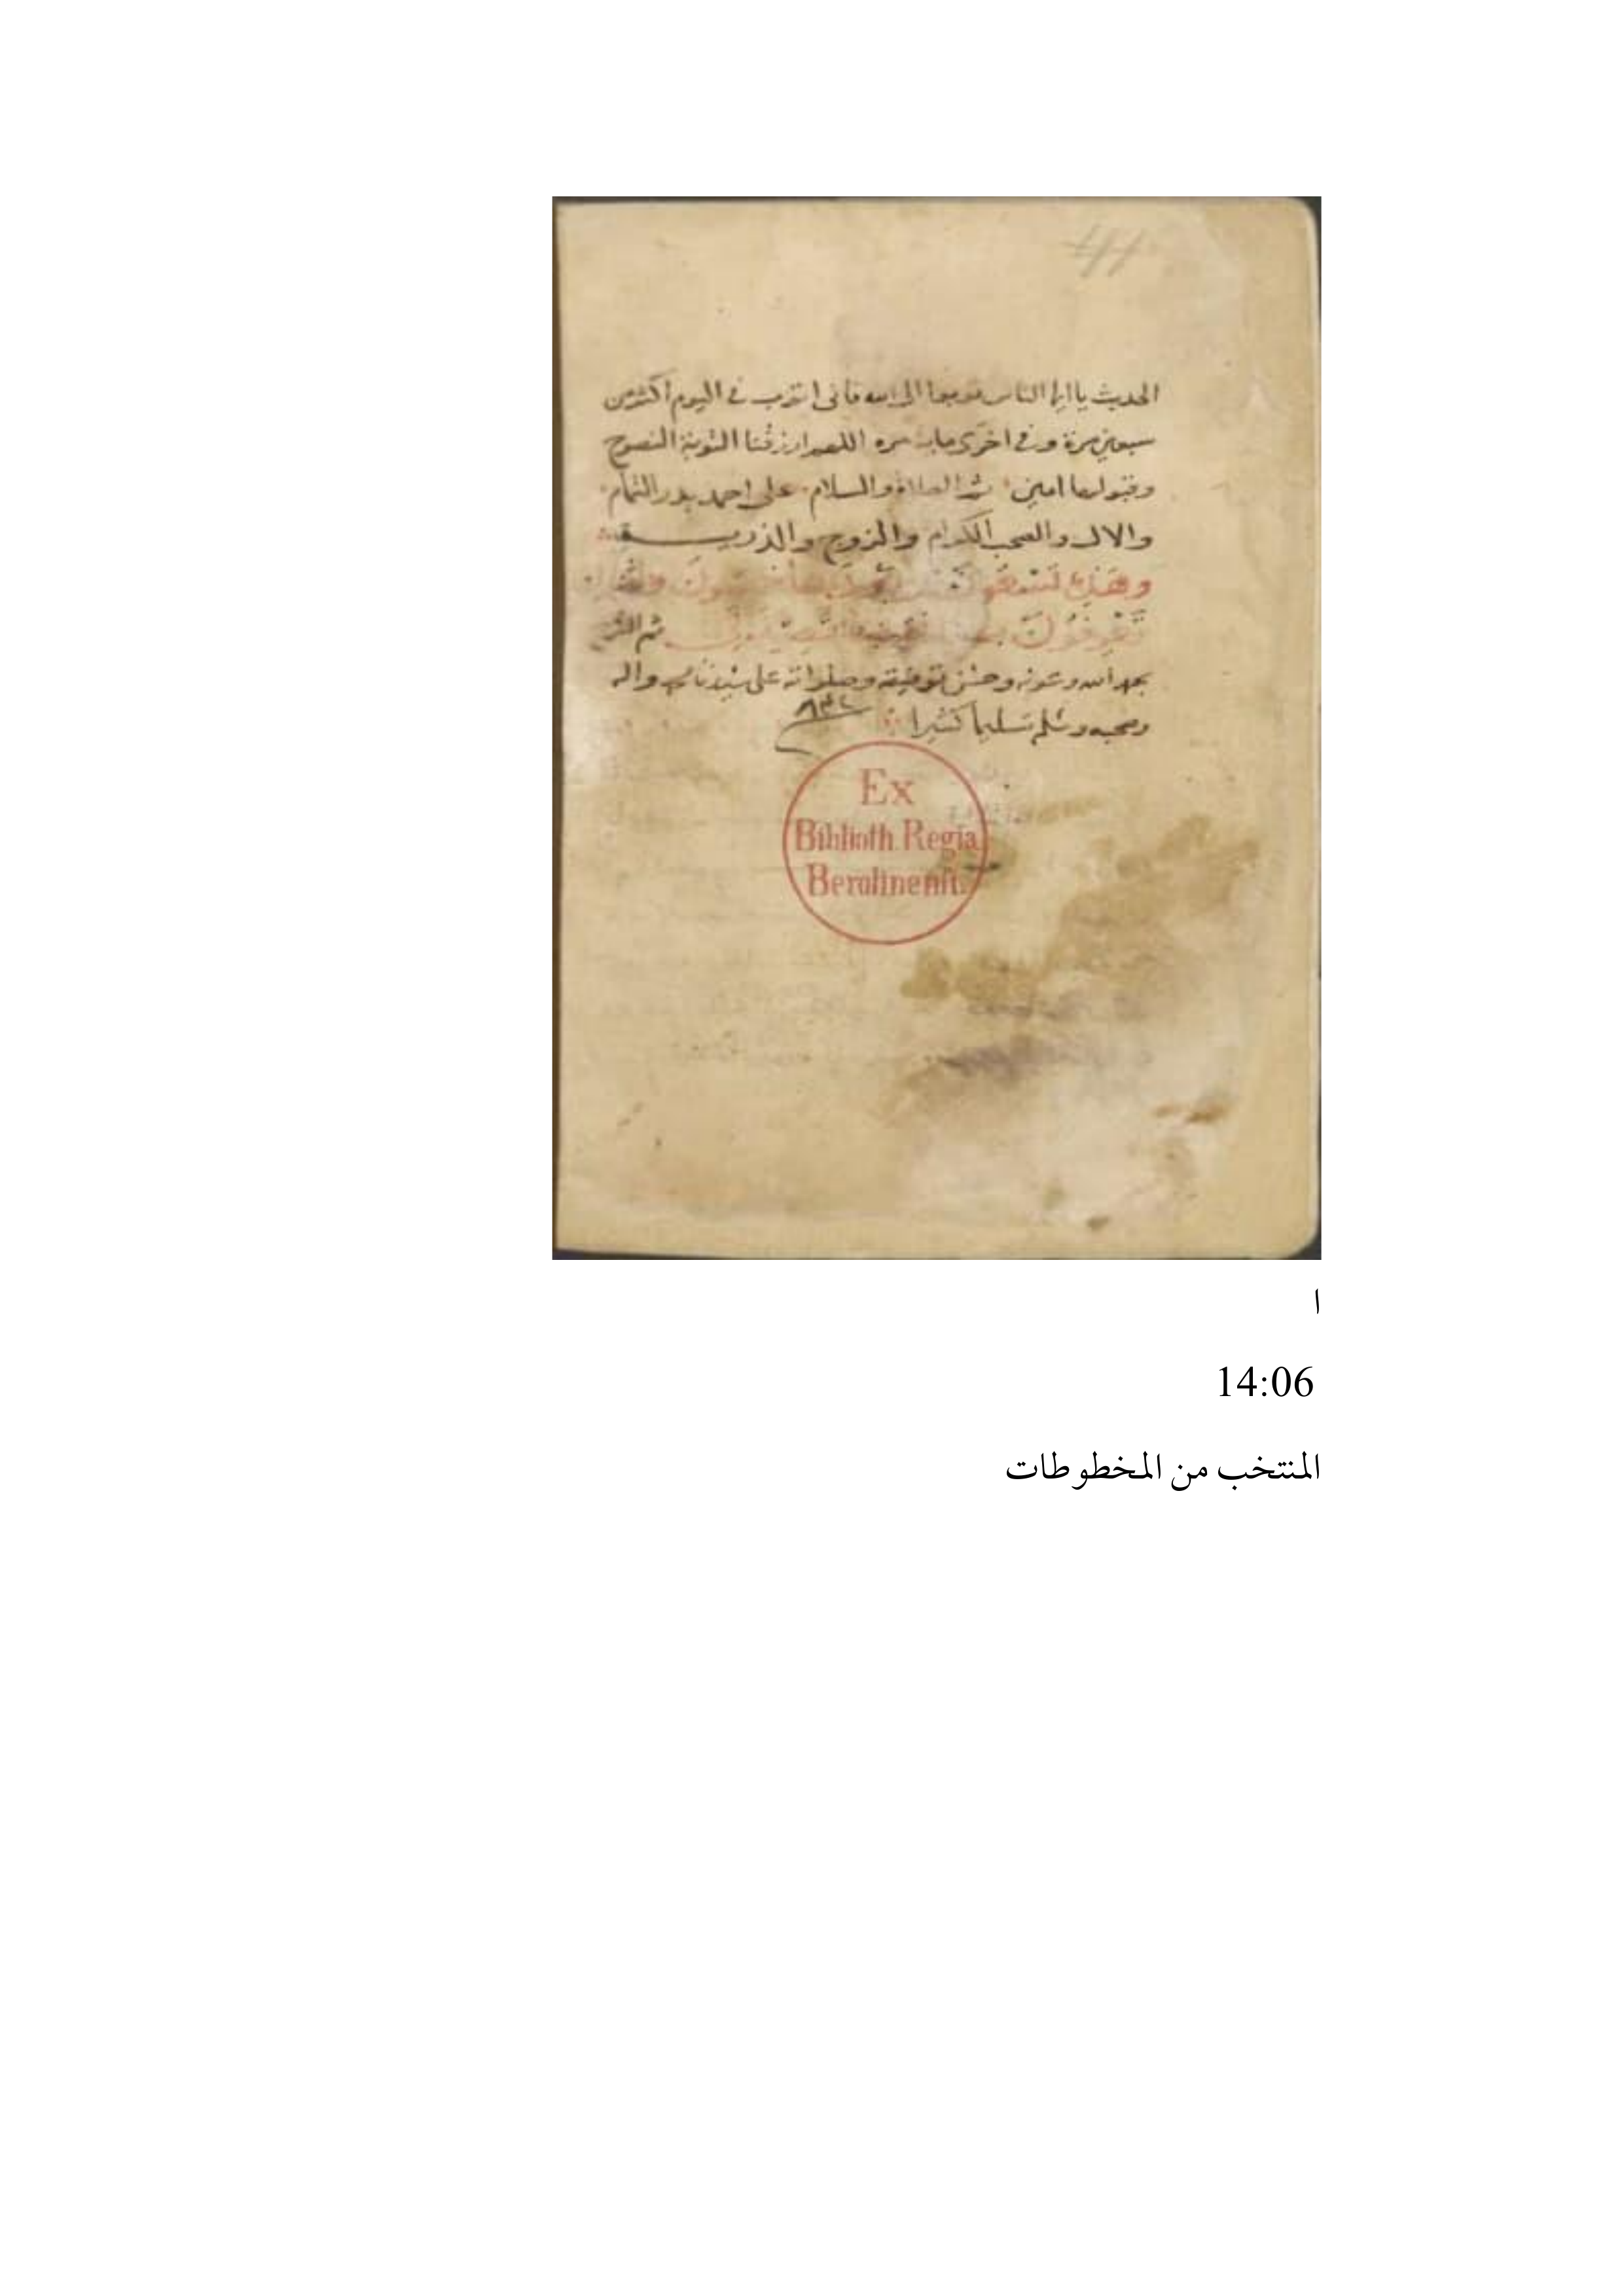 الحديث يا ايها الناس توبوا الى الله فانى اتوب فى اليوم اكثر من
سبعين مرة وفى اخرى ماية مره اللهم ارزقنا التوبة النصوح
وقبولها امين ثم الصلاة والسلام على احمد بدر التمام
والال والصحب الكرام والزوج والذرية
وهذه تسعون
ثم الشرح
بحمد الله وعونه وحسن توفيقه وصلواته على سيدنا محمد واله
وصحبه وسلم تسليما كثيرا
Ex
Biblioth. Regia
Berolinenſi.
ا
14:06
المنتخب من المخطوطات